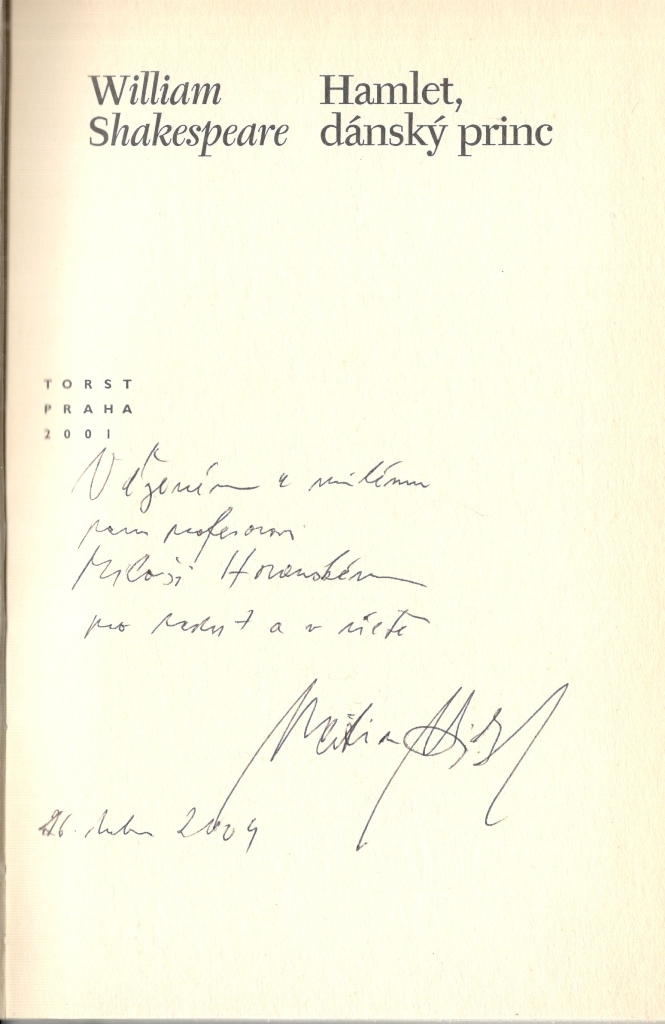 William
Shakespeare
Hamlet,
dánský princ
TORST
PRAHA
2001
Váženému a milému
panu profesorovi
Miloši Horanskému
pro radost a v úctě
Martin Hilský
26. dubna 2004